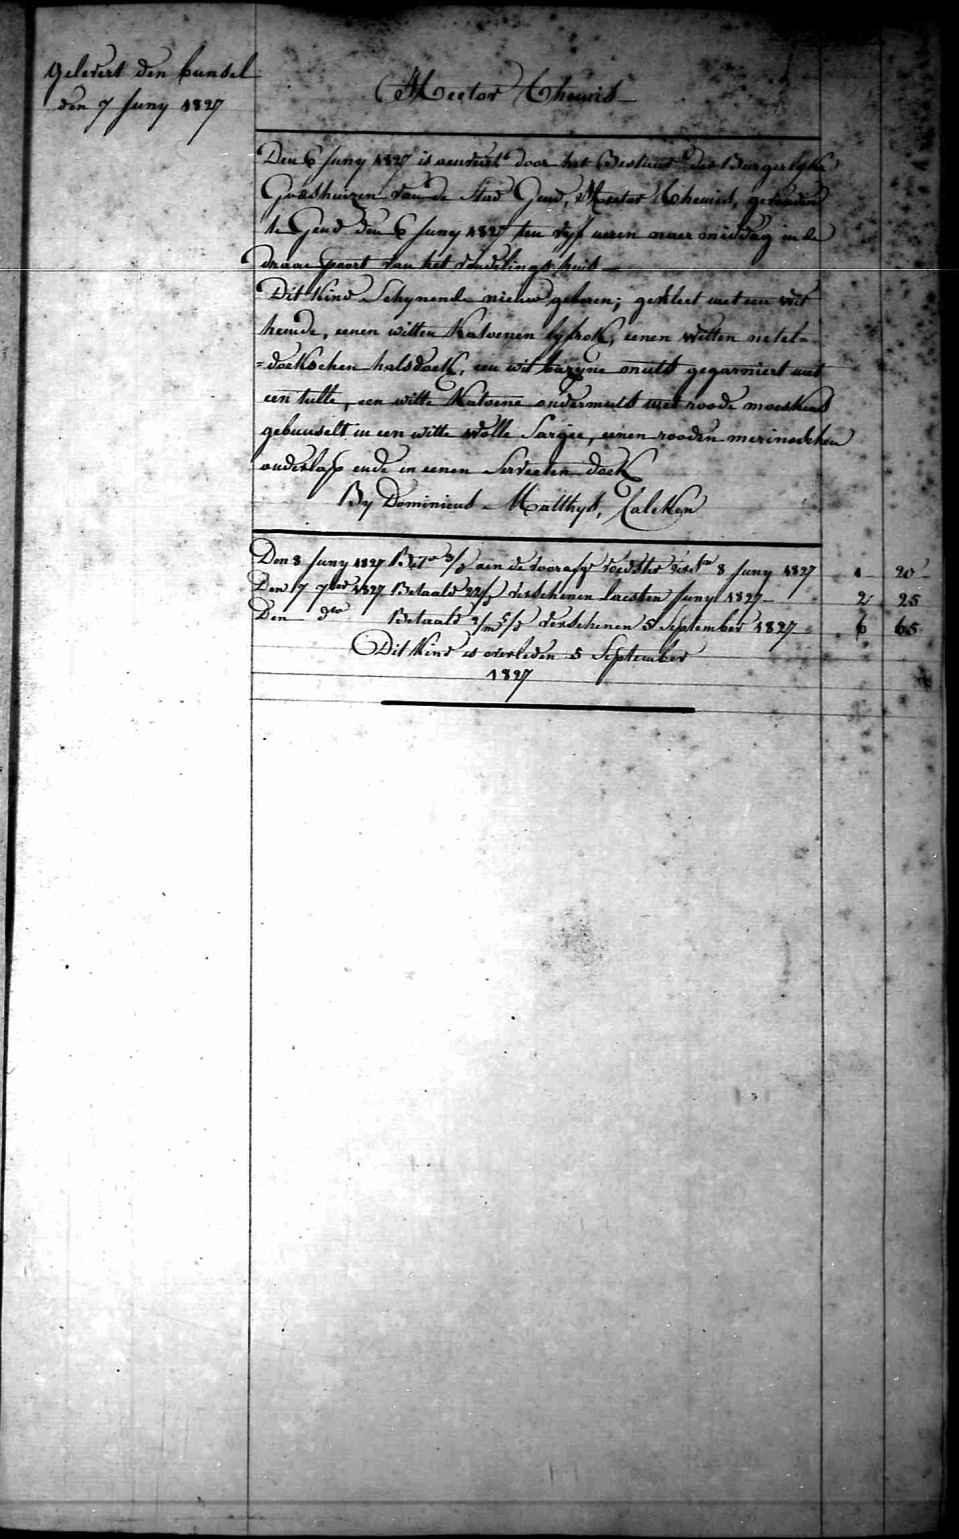 Gelevert den bundel
den 7 Juny 1827
Hector Themis
Den 6 Juny 1827 is aenveert door het Bestuur der Burgerlyke
Godshuizen van de Stad Gend, Hector Themis, gevonden
te Gend den 6 Juny 1827 ten vyf ueren naer middag in de
draai poort van het vondelings huis
Dit Kind Schynende nieuw geboren; gekleet met een wit
hemde, eenen witten Katoenen lyfrok, eenen witten netel-
=doekschen halsdoek, een wit bazyne muts gegarniert met
een tulle, een witte Katoene ondermuts met roode moeskens
gebuuselt in een witte wolle Sargie, eenen rooden merinoschen
onderlap ende in eenen Servietten doek
By Dominicus Matthys, Kalcken
Den 8 Juny 1827 Bet. 3/ aen de voorafg voedster 8 Juny 1827 1 20
Den 7 7ber 1827 Betaald 22/ verschenen laesten Juny 1827 2 25
Den do Betaald 2/m 5/ verschenen 5 September 1827 6 65
Dit Kind is overleden 5 September
1827